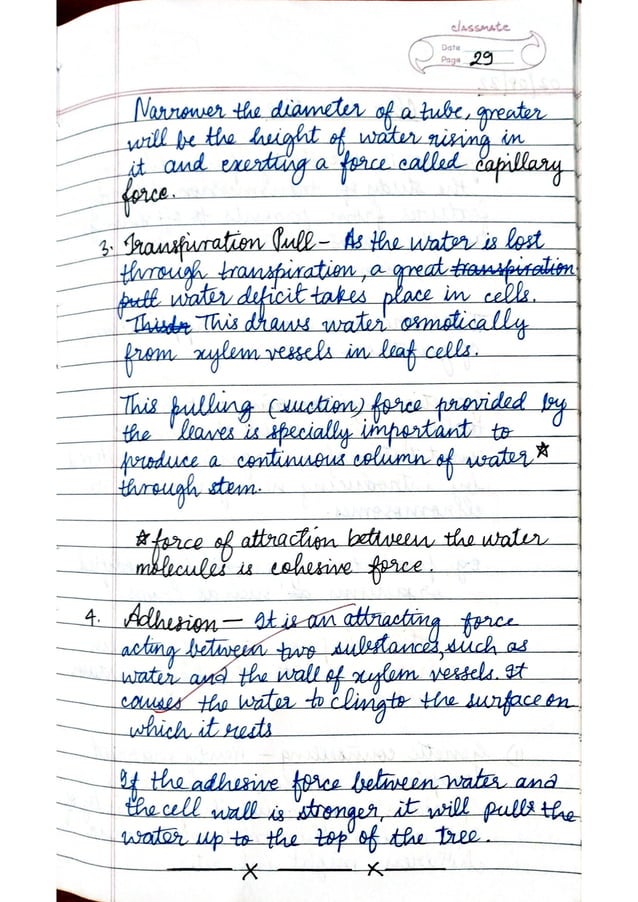 classmate
Date
Page 29
Narrower the diameter of a tube, greater
will be the height of water rising in
it and exerting a force called capillary
force.
3. Transpiration Pull – As the water is lost
through transpiration, a great transpiration
pull water deficit takes place in cells.
This dr This draws water osmotically
from xylem vessels in leaf cells.
This pulling (suction) force provided by
the leaves is specially important to
produce a continuous column of water ☆
through stem.
☆ force of attraction between the water
molecules is cohesive force.
4. Adhesion – It is an attracting force
acting between two substances, such as
water and the wall of xylem vessels. It
causes the water to cling to the surface on
which it rests
If the adhesive force between water and
the cell wall is stronger, it will pulls the
water up to the top of the tree.
x x